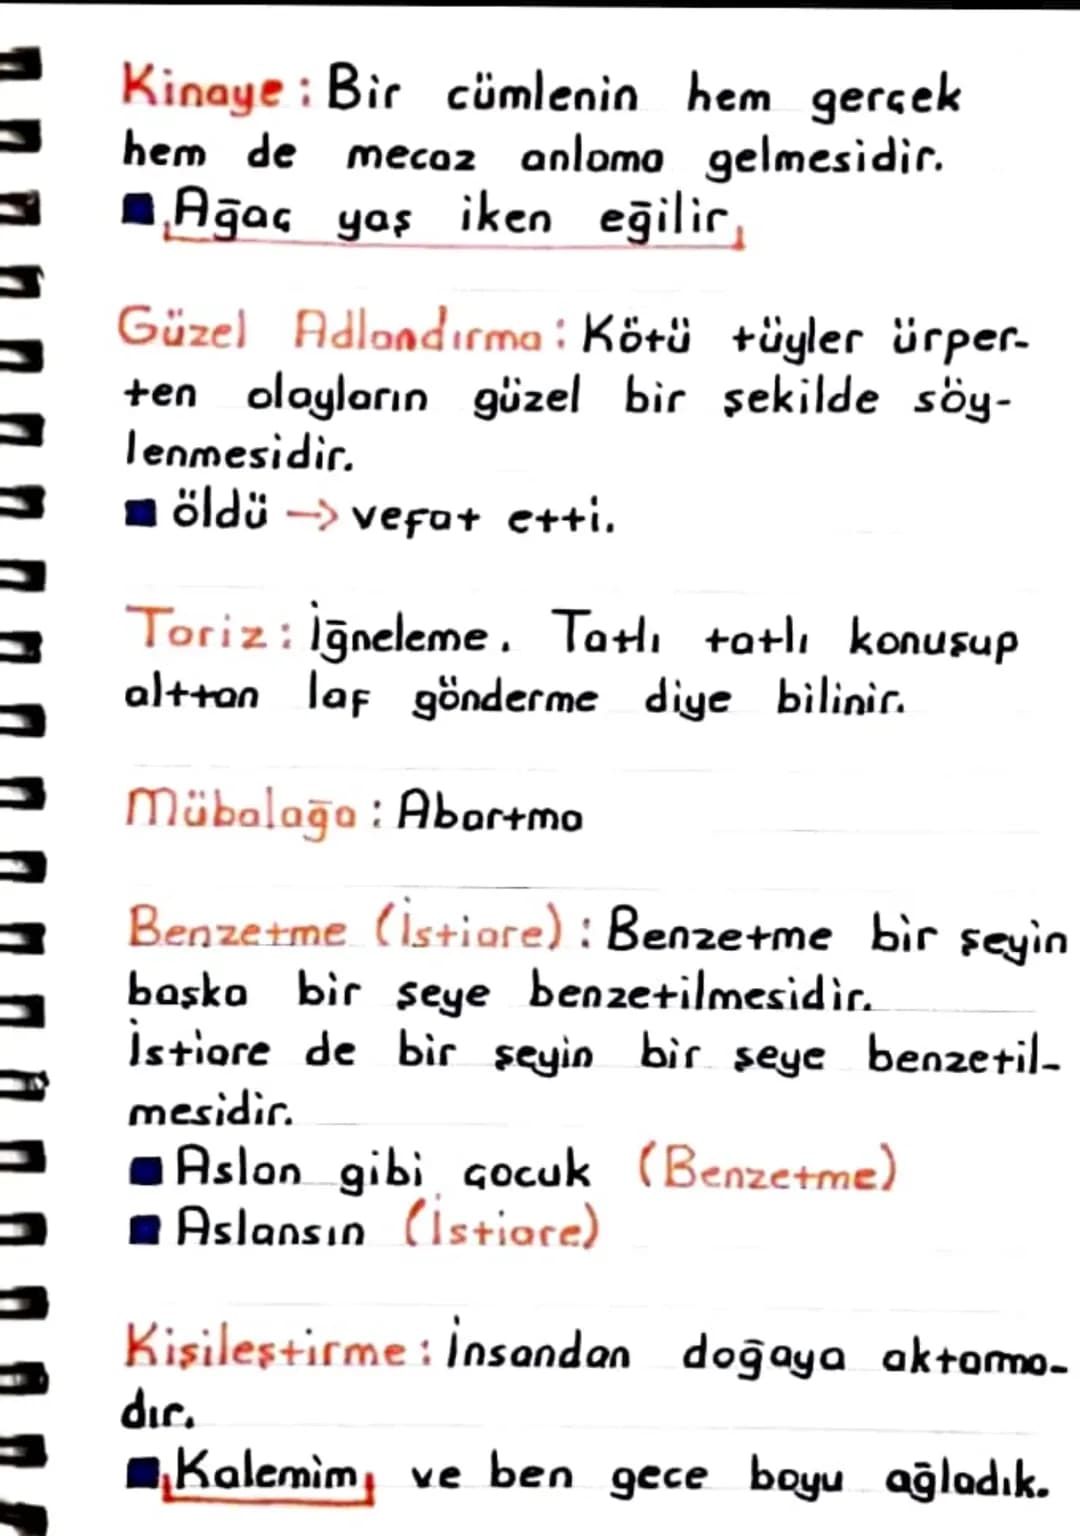 Kinaye : Bir cümlenin hem gerçek
hem de mecaz anlama gelmesidir.
Ağaç yaş iken eğilir
Güzel Adlandırma : Kötü tüyler ürper-
ten olayların güzel bir şekilde söy-
lenmesidir.
öldü → vefat etti.
Tariz : İğneleme. Tatlı tatlı konuşup
alttan laf gönderme diye bilinir.
Mübalağa : Abartma
Benzetme (İstiare) : Benzetme bir şeyin
başka bir şeye benzetilmesidir.
İstiare de bir şeyin bir şeye benzetil-
mesidir.
Aslan gibi çocuk (Benzetme)
Aslansın (İstiare)
Kişileştirme : İnsandan doğaya aktarma-
dır.
Kalemim ve ben gece boyu ağladık.